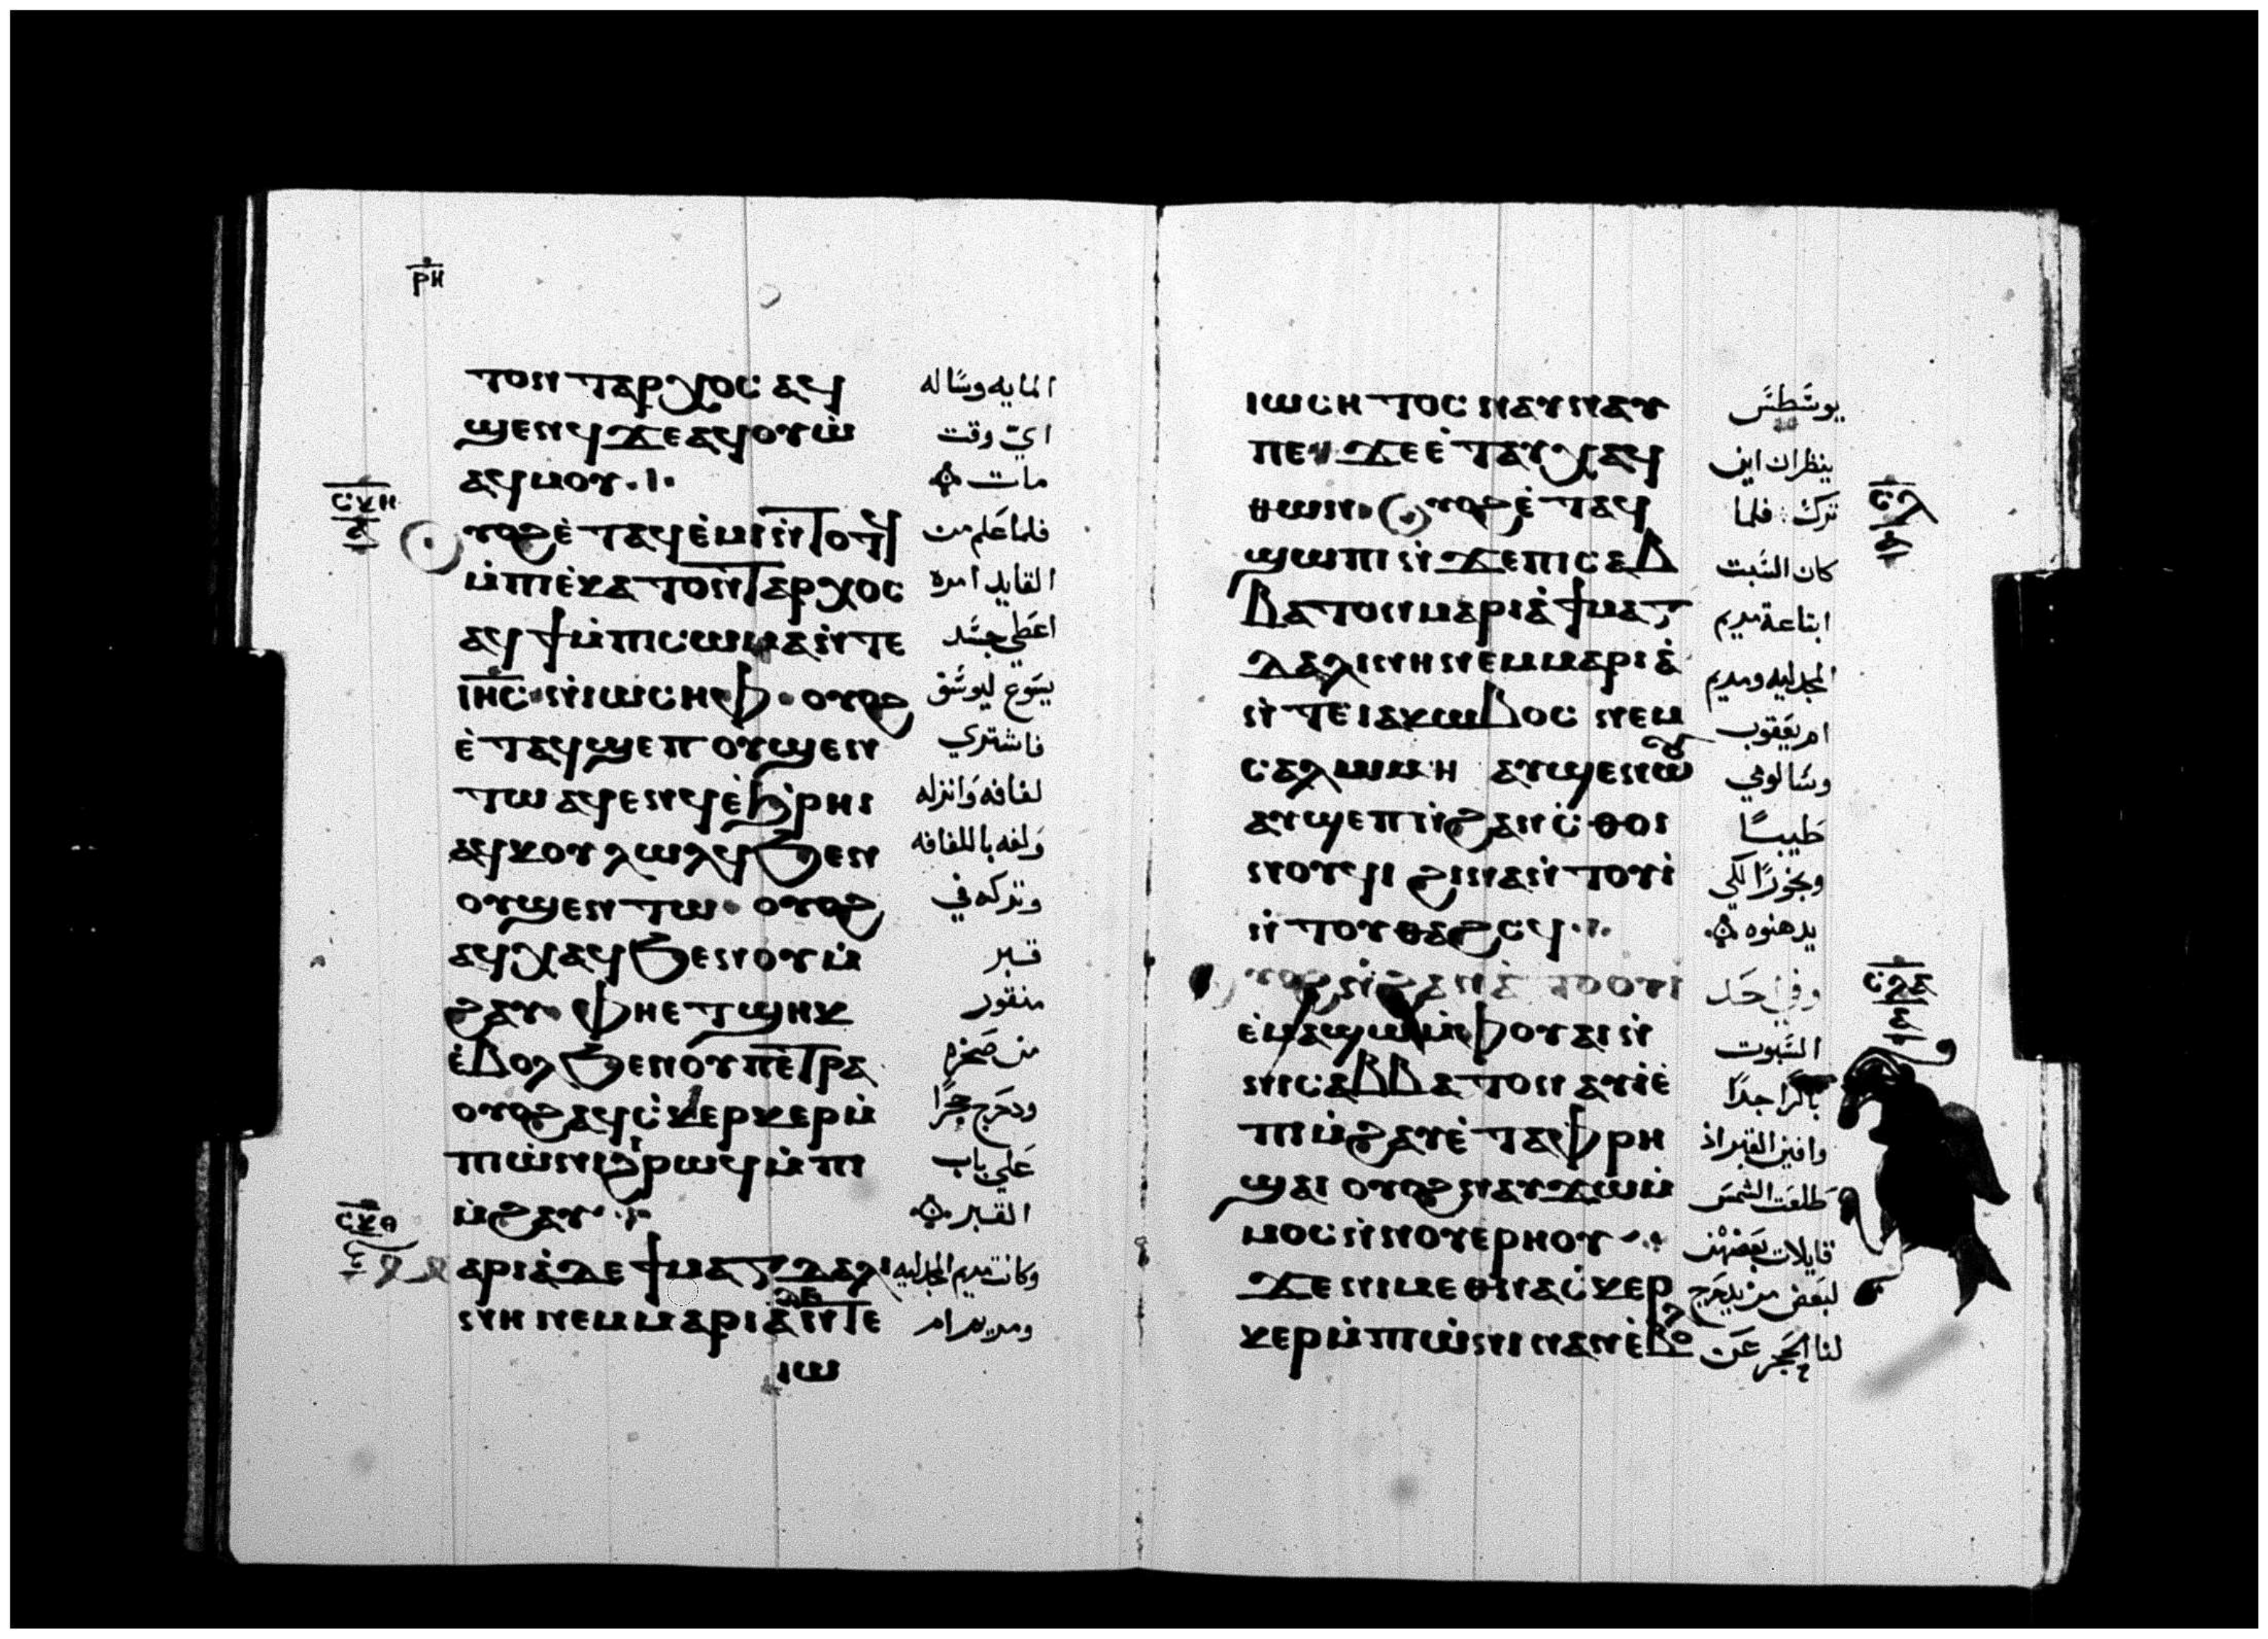 ⲣⲏ
ⲧⲟⲛⲧⲁⲣⲭⲟⲥ ⲁϥ المايه وساله
ϣⲉⲛϥ ϫⲉ ⲁϥⲟⲩⲱ اي وقت
ⲁϥⲙⲟⲩ مات
ⲥⲕⲏ
ⲟⲩⲟϩ ⲉ̀ⲧⲁϥⲉ̀ⲙⲓ ⲛ̀ⲧⲟⲧϥ فلما علم من
ⲙ̀ⲡⲓⲉ̀ⲕⲁⲧⲟⲛⲧⲁⲣⲭⲟⲥ القايد امره
ⲁϥϯ ⲙ̀ⲡⲓⲥⲱⲙⲁ ⲛ̀ⲧⲉ اعطي جسد
ⲓⲏⲥ ⲛ̀ⲓⲱⲥⲏⲫ ⲟⲩⲟϩ يسوع ليوسف
ⲉ̀ⲧⲁϥϣⲉⲡ ⲟⲩϣⲉⲛ فاشتري
ⲧⲱ ⲁϥⲉⲛϥ ⲉ̀ϧⲣⲏⲓ لفافه وانزله
ⲁϥⲕⲟⲩⲗⲱⲗϥ ϧⲉⲛ ولفه باللفافه
ⲟⲩϣⲉⲛⲧⲱ ⲟⲩⲟϩ وتركه في
ⲁϥⲭⲁϥ ϧⲉⲛ ⲟⲩⲙ̀ قبر
ϩⲁⲩ ⲫⲏⲉⲧϣⲏⲕ منقور
ⲉ̀ⲃⲟⲗ ϧⲉⲛ ⲟⲩⲡⲉⲧⲣⲁ من صخره
ⲟⲩⲟϩ ⲁϥⲥ̀ⲕⲉⲣⲕⲉⲣ ⲙ̀ ودحرج حجرًا
ⲡⲓⲱ̀ⲛⲓ ϩⲓⲣⲱϥ ⲙ̀ⲡⲓ علي باب
ⲙ̀ϩⲁⲩ القبر
ⲥⲕⲑ
ⲁⲣⲓⲁ̀ ⲇⲉ ϯⲙⲁⲅⲇⲁⲗⲓ وكانت مريم المجدليه
ⲛⲏ ⲛⲉⲙ ⲙⲁⲣⲓⲁ̀ ⲛ̀ⲧⲉ ومريم ام
ⲓⲱ
ⲓⲱⲥⲏⲧⲟⲥ ⲛⲁⲩⲛⲁⲩ يوسطس
ⲡⲉ ϫⲉ ⲉ̀ⲧⲁⲩⲭⲁϥ ينظران اين
ⲑⲱⲛ ⲟⲩⲟϩ ⲉ̀ⲧⲁϥ ترك فلما
ⲥⲗ
ϣⲱⲡⲓ ⲛ̀ϫⲉ ⲡⲓⲥⲁⲃ كان السبت
ⲃⲁⲧⲟⲛ ⲙⲁⲣⲓⲁ̀ ϯⲙⲁⲅ ابتاعة مريم
ⲇⲁⲗⲓⲛⲏ ⲛⲉⲙ ⲙⲁⲣⲓⲁ̀ المجدليه ومريم
ⲛ̀ⲧⲉ ⲓⲁⲕⲱⲃⲟⲥ ⲛⲉⲙ ام يعقوب
ⲥⲁⲗⲱⲙⲏ ⲁⲩϣⲉⲛⲱⲟⲩ وسالومي
ⲁⲩϣⲉⲡ ϩⲁⲛⲥ̀ⲑⲟⲓ طيبًا
ⲛⲟⲩϥⲓ ϩⲓⲛⲁ ⲛ̀ⲧⲟⲩⲓ̀ وبخورًا لكي
ⲛ̀ⲧⲟⲩⲑⲁϩⲥϥ يدهنوه
ⲥⲗⲁ
ⲟⲩⲟϩ ⲛ̀ϩⲁⲛⲁ̀ⲧⲟⲟⲩⲓ وفي احد
ⲉ̀ⲙⲁϣⲱ ⲙ̀ⲫⲟⲩⲁⲓ ⲛ̀ السبوت
ⲛⲓⲥⲁⲃⲃⲁⲧⲟⲛ ⲁⲩⲓ̀ ⲉ̀ باكرًا جدًا
ⲡⲓⲙ̀ϩⲁⲩ ⲉ̀ⲧⲁ ⲫⲣⲏ وافين القبر اذ
ϣⲁⲓ ⲟⲩⲟϩ ⲛⲁⲩϫⲱ ⲙ̀ طلعت الشمس
ⲙⲟⲥ ⲛ̀ⲛⲟⲩⲉⲣⲏⲟⲩ قايلات بعضهن
ϫⲉ ⲛⲓⲙ ⲉⲑⲛⲁⲥ̀ⲕⲉⲣ لبعض من يدحرج
ⲕⲉⲣ ⲙ̀ⲡⲓⲱ̀ⲛⲓ ⲛⲁⲛ ⲉ̀ⲃⲟⲗ لنا الحجر عن